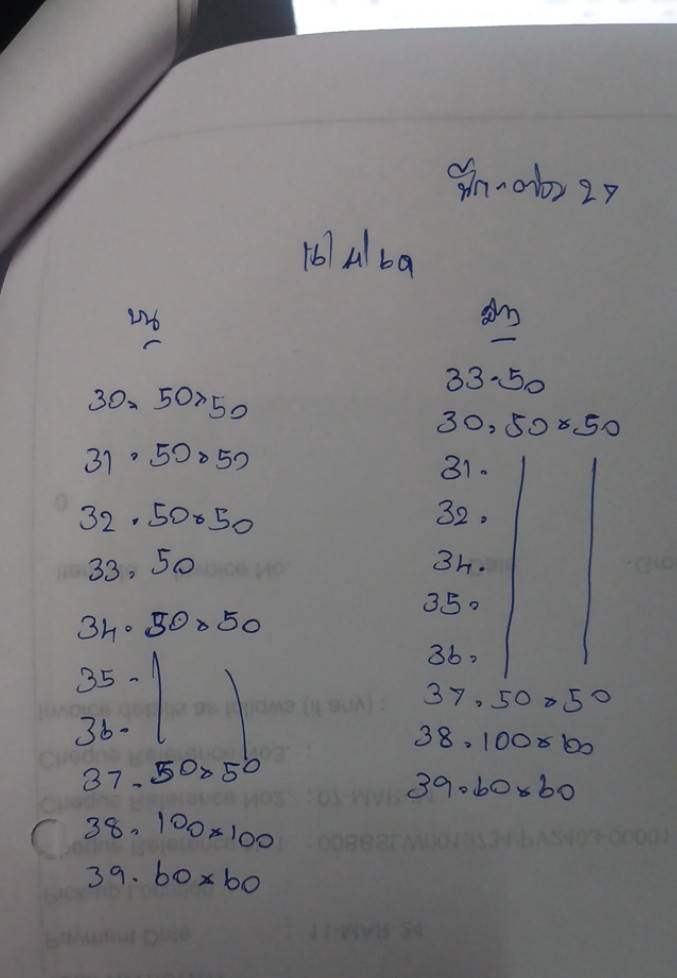 27
16/4/69
บน
30. 50×50
31. 50×50
32. 50×50
33. 50
34. 50×50
35.
36.
37. 50×50
38. 100×100
39. 60×60
ล่าง
33. 50
30. 50×50
31.
32.
34.
35.
36.
37. 50×50
38. 100×
39. 60×60